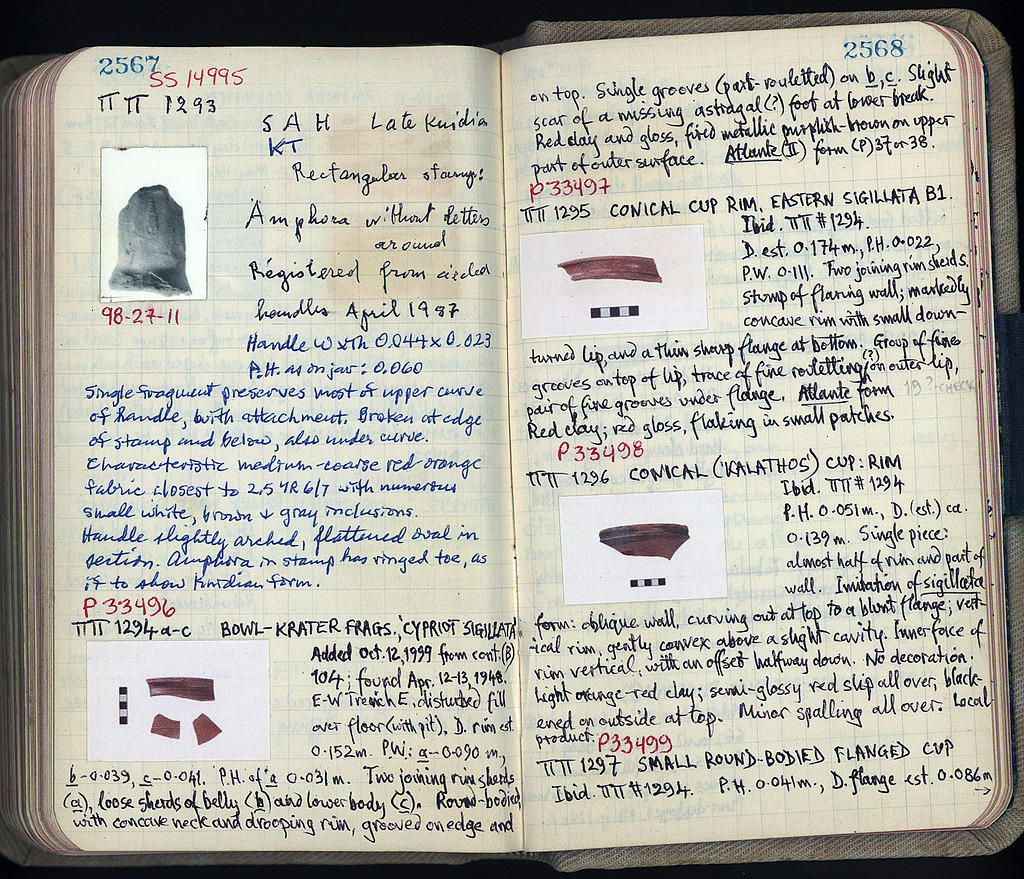 2567
SS 14995
ΠΠ 1293
SAH Late Knidian
KT
Rectangular stamp:
Amphora without letters
around
Registered from circled
handles April 1987
98-27-11
Handle W x th 0.044 x 0.023
P.H. as on jar: 0.060
Single fragment preserves most of upper curve
of handle, with attachment. Broken at edge
of stamp and below, also under curve.
Characteristic medium-coarse red-orange
fabric closest to 2.5 YR 6/7 with numerous
small white, brown & gray inclusions.
Handle slightly arched, flattened oval in
section. Amphora in stamp has ringed toe, as
if to show Knidian form.
P 33496
ΠΠ 1294 a-c BOWL-KRATER FRAGS., 'CYPRIOT SIGILLATA'
Added Oct. 12, 1999 from cont. (B)
104; found Apr. 12-13, 1948.
E-W Trench E, disturbed fill
over floor (with pit). D. rim est.
0.152 m. P.W.: a-0.090 m.,
b-0.039, c-0.041. P.H. of a 0.031 m. Two joining rim sherds
(a), loose sherds of belly (b) and lower body (c). Round-bodied
with concave neck and drooping rim, grooved on edge and
2568
on top. Single grooves (part-rouletted) on b, c. Slight
scar of a missing astragal (?) foot at lower break.
Red clay and gloss, fired metallic purplish-brown on upper
part of outer surface. Atlante (II) form (P) 37 or 38.
P 33497
ΠΠ 1295 CONICAL CUP RIM. EASTERN SIGILLATA B1.
Ibid. ΠΠ #1294.
D. est. 0.174 m., P.H. 0.022,
P.W. 0.111. Two joining rim sherds.
stump of flaring wall; markedly
concave rim with small down-
turned lip, and a thin sharp flange at bottom. Group of fine
grooves on top of lip, trace of fine rouletting (?) on outer lip,
pair of fine grooves under flange. Atlante form 19?-CHECK
Red clay; red gloss, flaking in small patches.
P 33498
ΠΠ 1296 CONICAL ('KALATHOS') CUP: RIM
Ibid. ΠΠ #1294
P.H. 0.051 m., D. (est.) ca.
0.139 m. Single piece:
almost half of rim and part of
wall. Imitation of sigillata
form: oblique wall, curving out at top to a blunt flange; vert-
ical rim, gently convex above a slight cavity. Inner face of
rim vertical, with an offset halfway down. No decoration.
Light orange-red clay; semi-glossy red slip all over, black-
ened on outside at top. Minor spalling all over. Local
product.
P 33499
ΠΠ 1297 SMALL ROUND-BODIED FLANGED CUP
Ibid. ΠΠ #1294. P.H. 0.041 m., D. flange est. 0.086 m
→